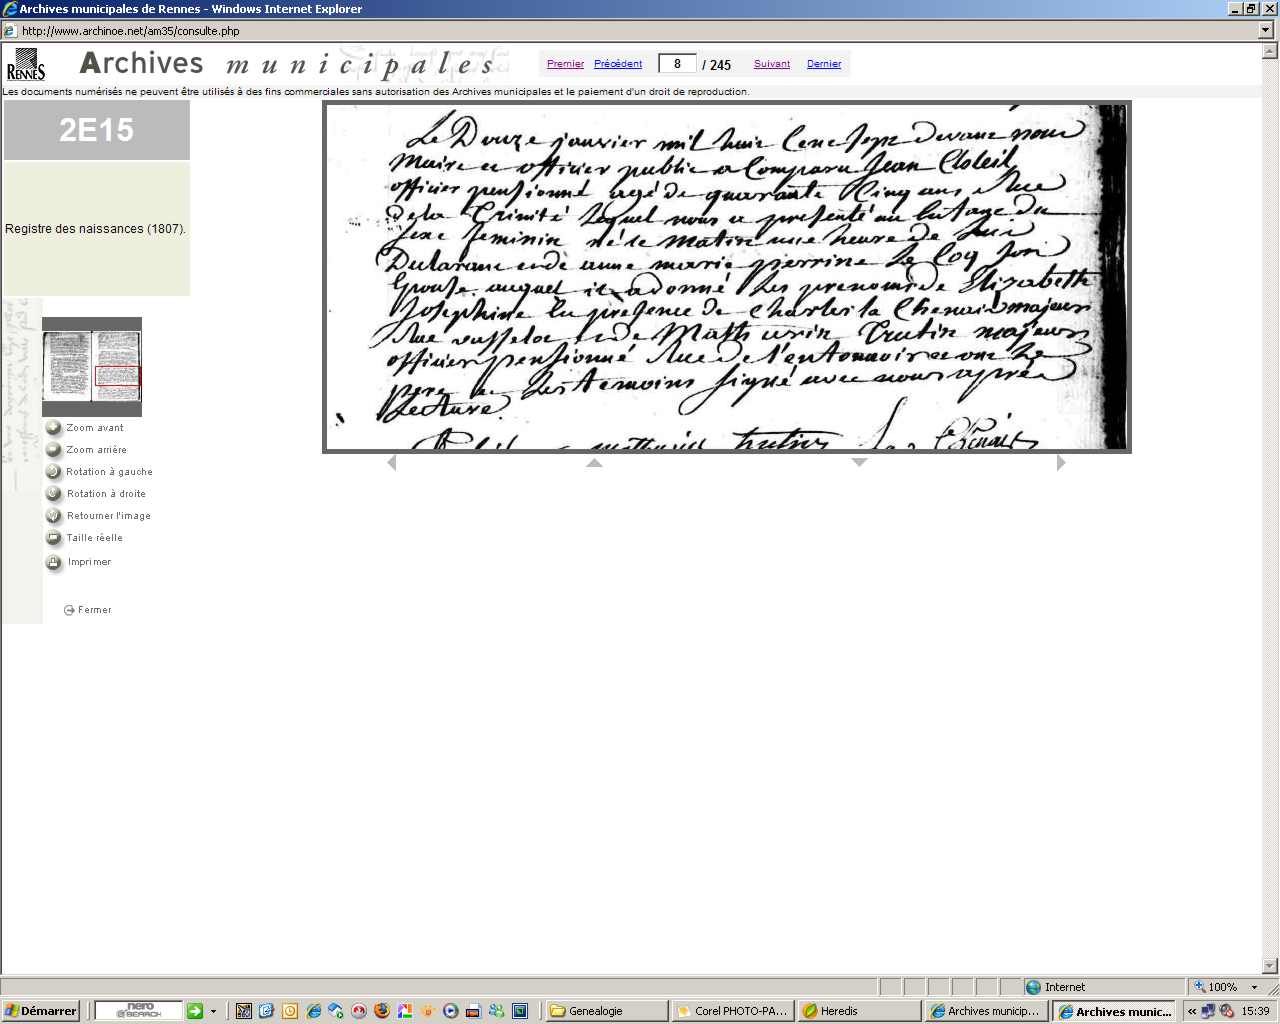 Archives municipales de Rennes - Windows Internet Explorer
http://www.archinoe.net/am35/consulte.php
RENNES
Archives municipales
Premier Précédent 8 / 245 Suivant Dernier
Les documents numérisés ne peuvent être utilisés à des fins commerciales sans autorisation des Archives municipales et le paiement d'un droit de reproduction.
2E15
Registre des naissances (1807).
Le Douze janvier mil huit Cent Sept devant nous
Maire et officier public a Comparu Jean
officier pensionné agé de quarante Cinq ans Rue
de la Trinité Lequel nous a presenté un Enfant du
Sexe feminin né ce matin une heure de lui
Declarant et de anne marie perrine Le Coq Son
Epouse auquel il a donné Les prenoms de Elizabeth
Josephine En presence de Charles la Chenais majeur
Rue vasselot et de Mathurin Trutin majeur
officier pensionné Rue de l'entonnoir Le
pere et Les temoins Signé avec nous après
Lecture
mathurin trutin
Zoom avant
Zoom arrière
Rotation à gauche
Rotation à droite
Retourner l'image
Taille réelle
Imprimer
Fermer
Internet 100%
Démarrer nero SEARCH Genealogie Corel PHOTO-PA... Heredis Archives municip... Archives munic... 15:39